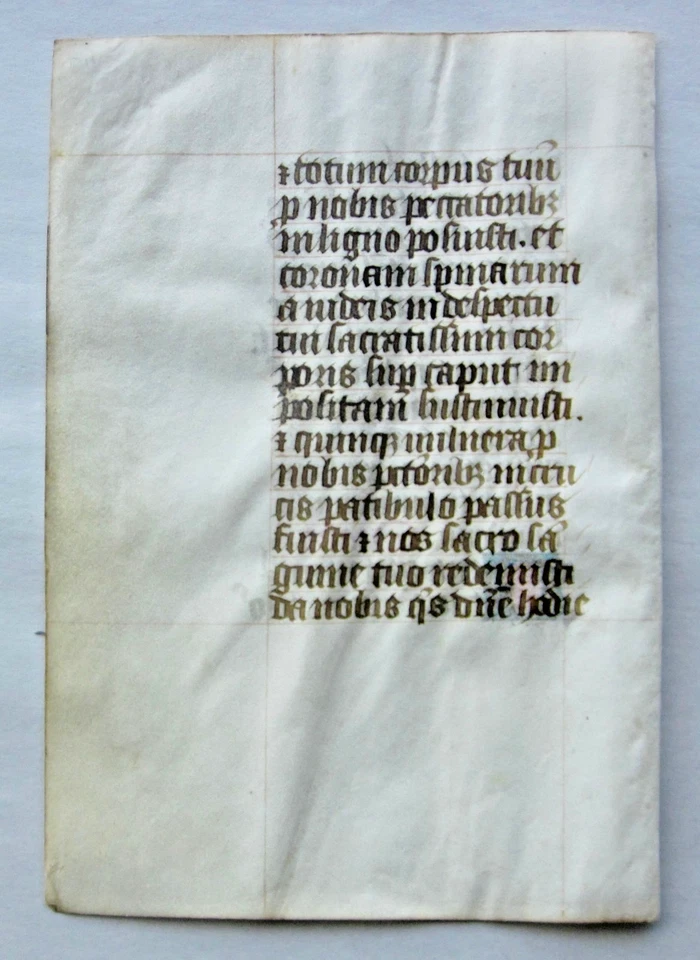 ⁊ totum corpus tuū
ꝑ nobis peccatoribꝫ
in ligno posuisti. et
coronam spinarum
a iudeis in despectu
tui sacratissimi cor
poris suꝑ caput im
positam sustinuisti.
⁊ quinqꝫ uulnera ꝑ
nobis pctōribꝫ in cru
cis patibulo passus
fuisti ⁊ nos sacro sā
guine tuo redemisti
da nobis q̄s dn̄e hodie